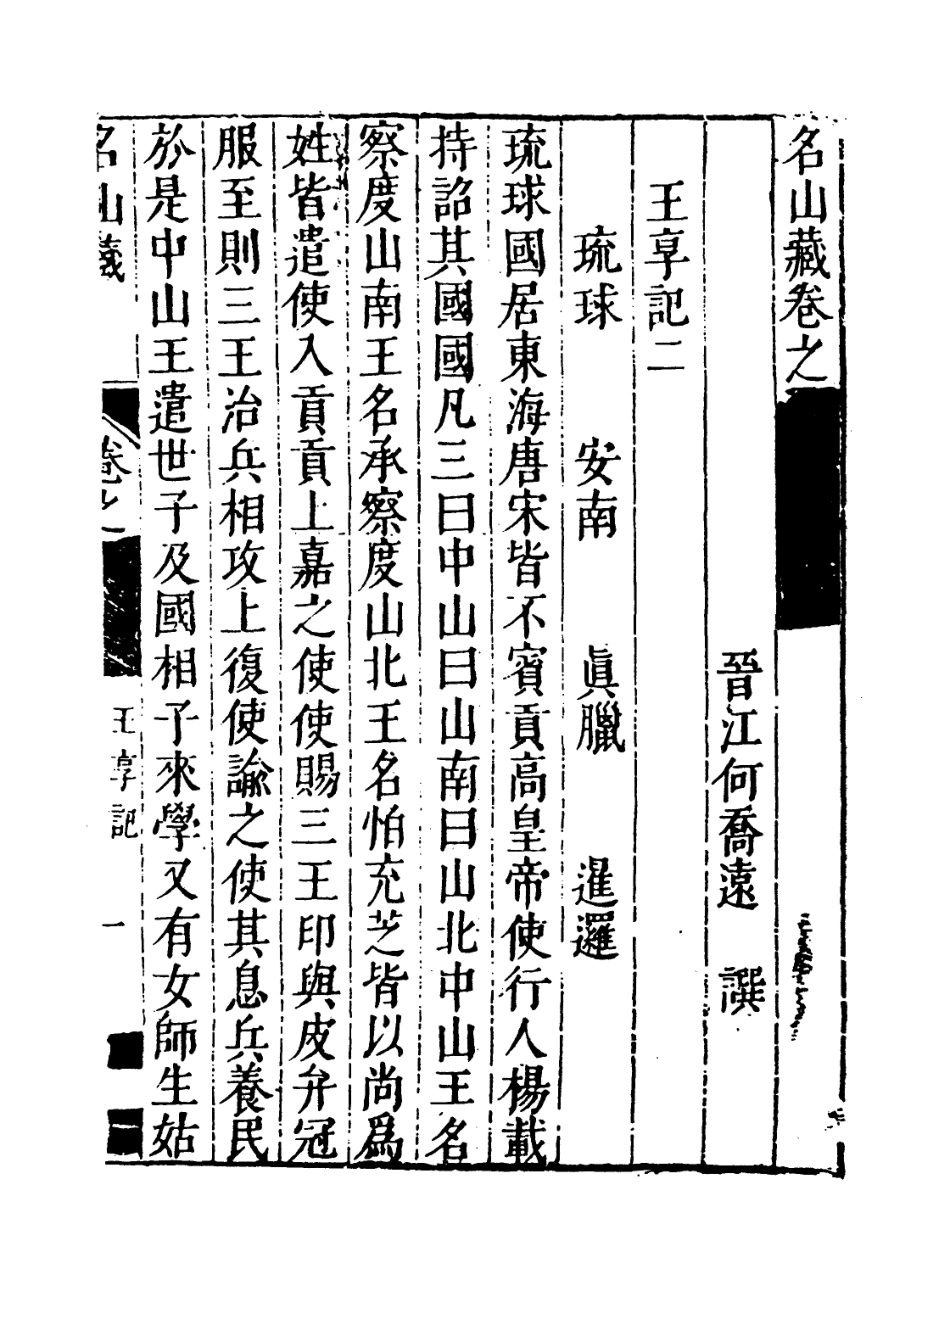 名山藏卷之
晉江何喬遠 譔
王享記二
琉球 安南 眞臘 暹邏
琉球國居東海唐宋皆不賓貢高皇帝使行人楊載
持詔其國國凡三曰中山曰山南曰山北中山王名
察度山南王名承察度山北王名怕充芝皆以尚爲
姓皆遣使入貢貢上嘉之使使賜三王印與皮弁冠
服至則三王治兵相攻上復使諭之使其息兵養民
於是中山王遣世子及國相子來學又有女師生姑
名山藏
卷之
王享記
一